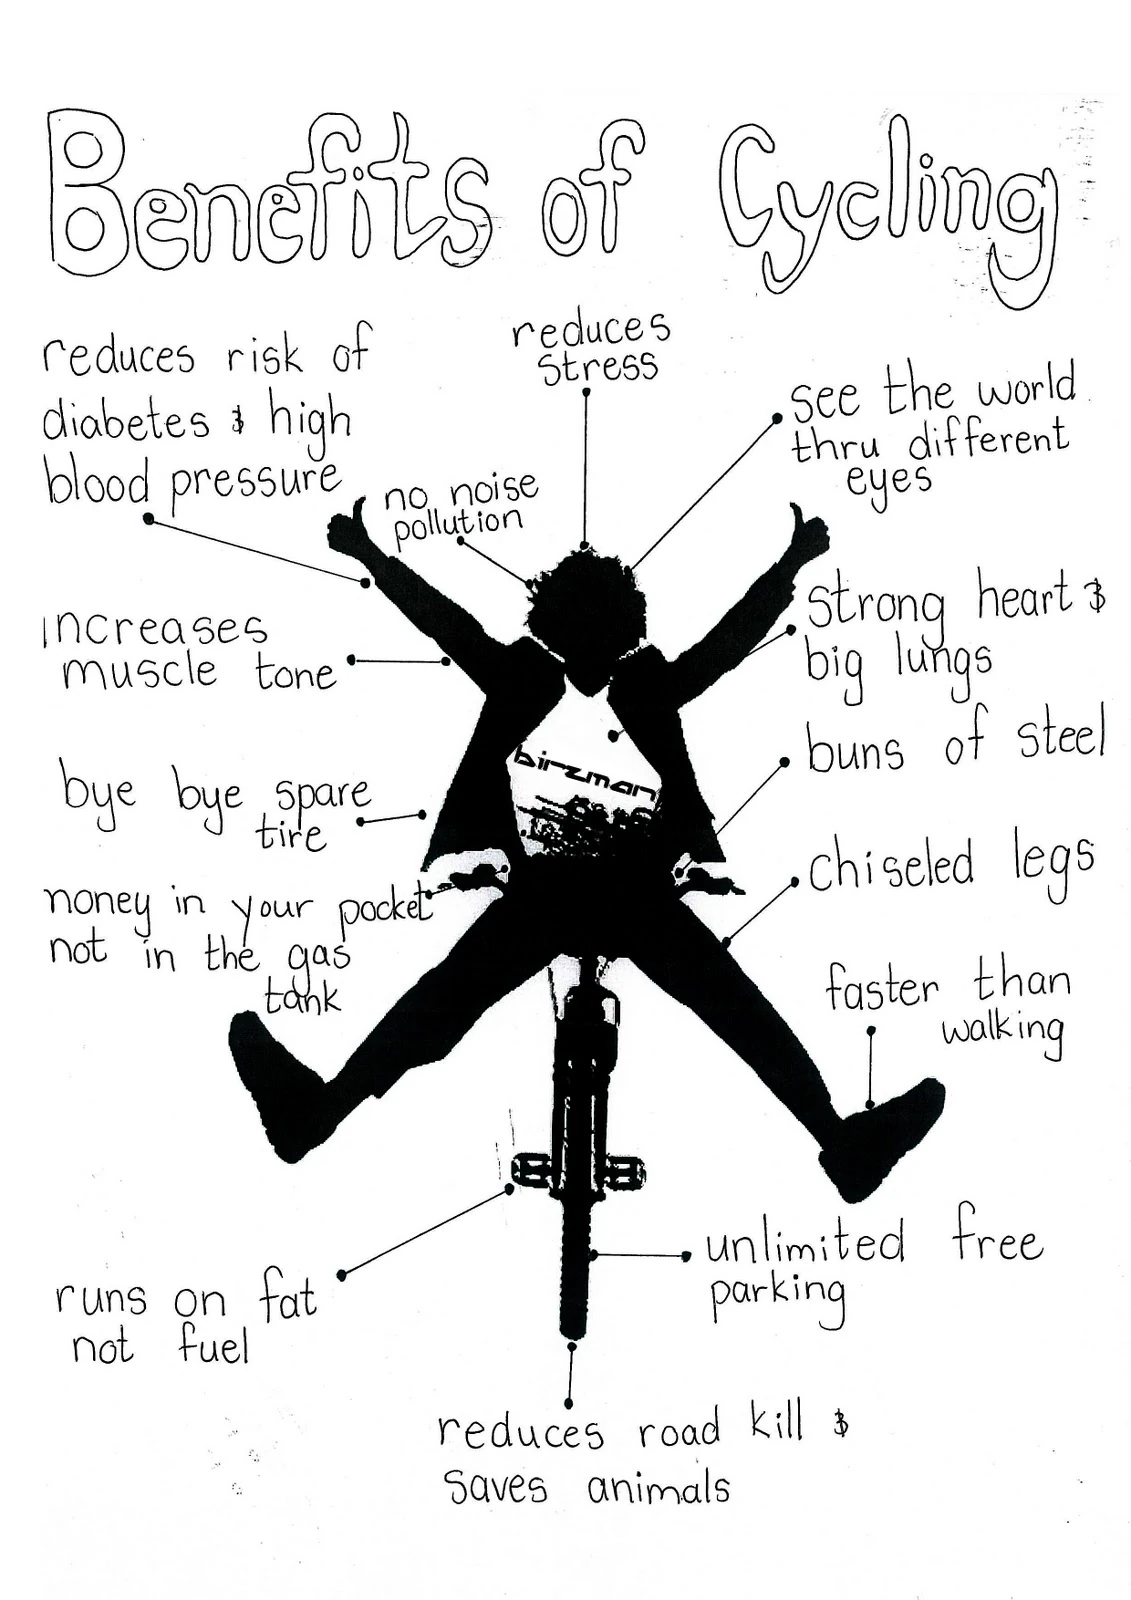 Benefits of Cycling
reduces risk of
diabetes & high
blood pressure
reduces
stress
see the world
thru different
eyes
no noise
pollution
increases
muscle tone
strong heart &
big lungs
birzman
bye bye spare
tire
buns of steel
noney in your pocket
not in the gas
tank
chiseled legs
faster than
walking
runs on fat
not fuel
unlimited free
parking
reduces road kill &
saves animals